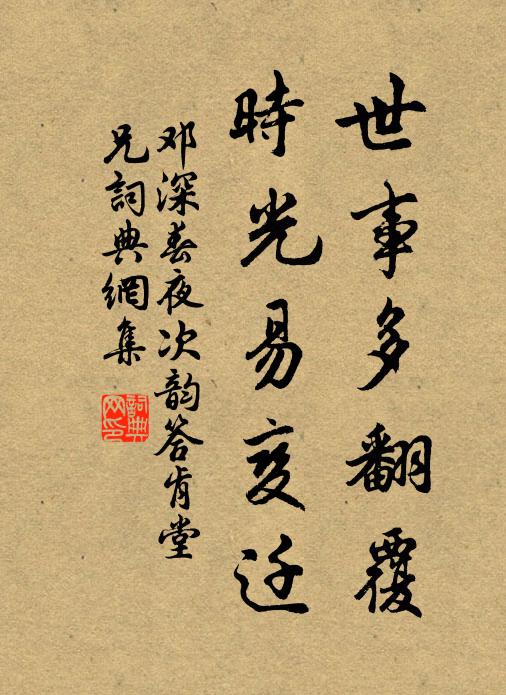 世事多翻覆
時光易变迁
邓深春夜次韵答肯堂
兄詞典網集
詞典
网印